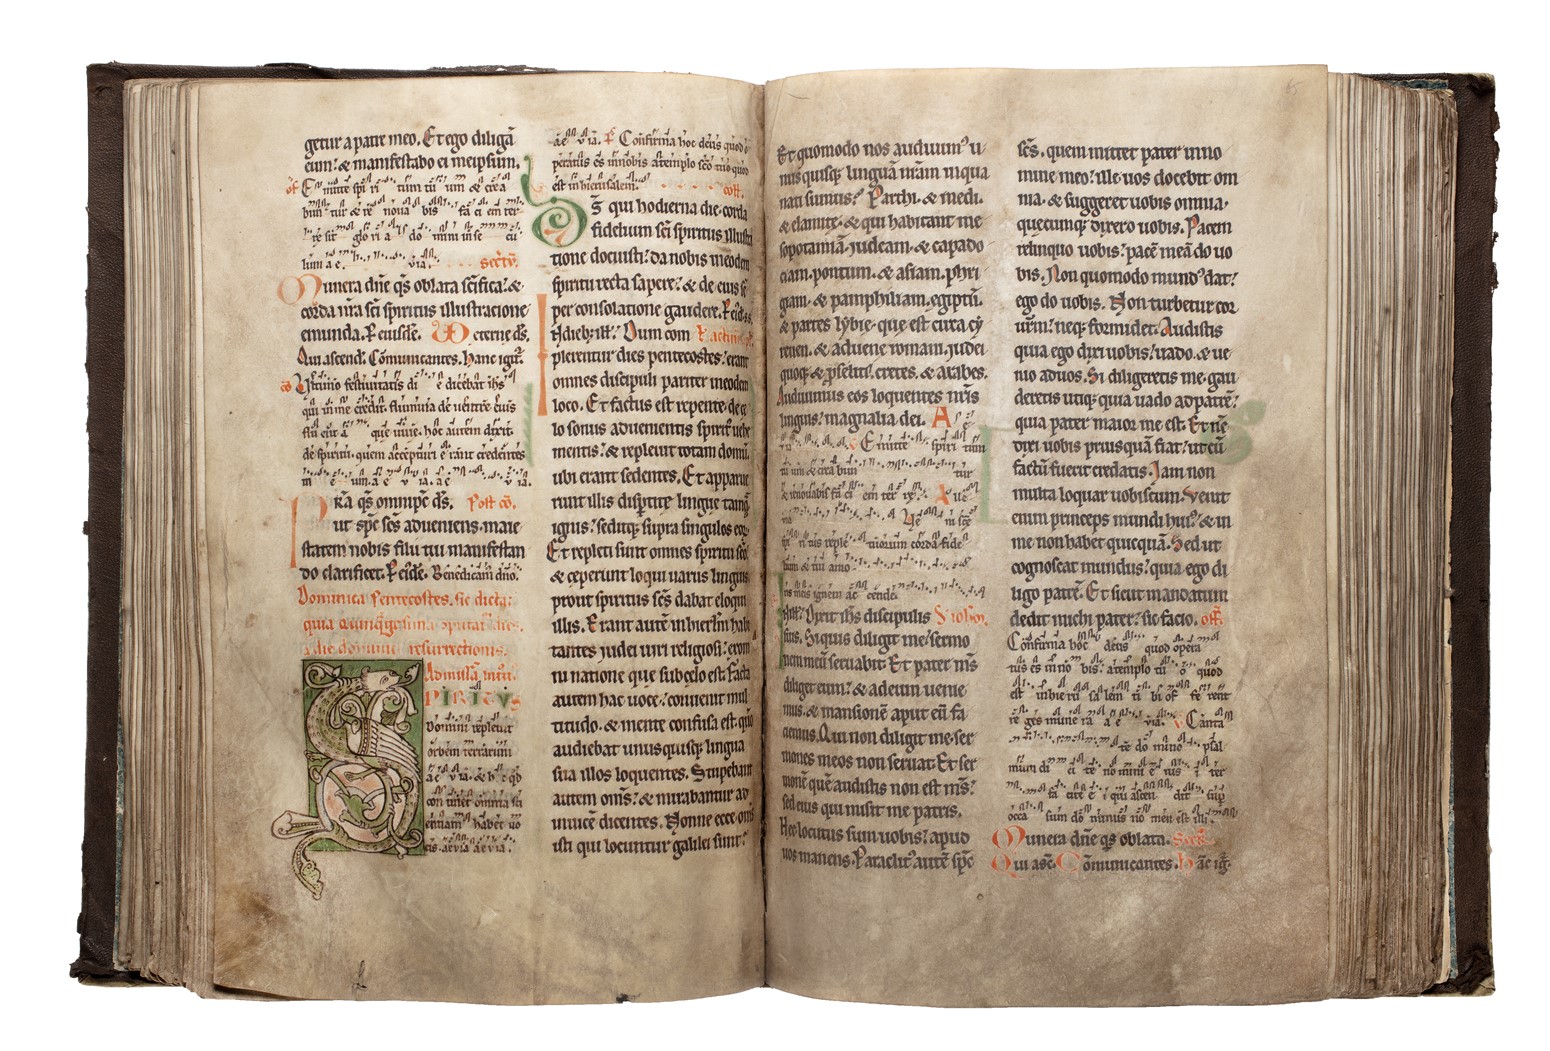 getur a patre meo. Et ego diligā
eum: & manifestabo ei meipsum.
Emitte spi ri tum tu um & crea
bun tur & re noua bis fa ci em ter
re sit glo ri a do mini in se cu
lum a e uia. secret.
Munera dn̄e qs oblata sc̄ifica: &
corda nr̄a sc̄i spiritus illustratione
emunda. P eiusdē. VD eterne ds̄.
Qui ascend. Cōmunicantes. Hanc igit̄
Ultimo festiuitatis di e dicebat ihs̄
qui in me credit. flumina de uentre eius
que uiue. hoc autem dixit
de spiritu. quem accepturi erant credentes
in e um. a e uia. a e uia.
qs omnipc̄ ds̄. Post cō.
ut spc̄ sc̄s adueniens. maie
statem nobis filii tui manifestan
do clarificet. P eiūdē. Benedicam̄ dn̄o.
Dominica pentecostes. sic dicta:
quia quinquagesima dies.
a die dominice resurrectionis.
Ad missā intr̄.
SPIRITVS
Domini repleuit
orbem terrarum
ae uia. & h qd
con tinet omnia sci
entiam habet uo
cis. aeuia aeuia.
ae uia. Confirma hoc deus quod o
peratus es in nobis a templo sc̄o tuo quod
est in hierusalem. coll.
Ds̄ qui hodierna die. corda
fidelium sc̄i spiritus illustra
tione docuisti: da nobis in eodem
spiritu recta sapere: & de eius
consolatione gaudere. P eiūdē.
In dieb; ill': Dum com
plerentur dies pentecostes: erant
omnes discipuli pariter in eodem
loco. Et factus est repente. de ce
lo sonus aduenientis spirit' uehe
mentis: & repleuit totam domū.
ubi erant sedentes. Et apparue
runt illis dispertite lingue tamq̄
ignis: seditq; supra singulos eor.
Et repleti sunt omnes spiritu sc̄o.
& ceperunt loqui uariis linguis
prout spiritus sc̄s dabat eloqui
illis. Erant autē in hierlm̄ habi
tantes iudei uiri religiosi: ex om
ni natione que sub celo est. Facta
autem hac uoce: conuenit mul
titudo. & mente confusa est. qm̄
audiebat unusquisq; lingua
sua illos loquentes. Stupebant
autem om̄s: & mirabantur ad
inuicē dicentes. Nonne ecce om̄s
isti qui locuntur galilei sunt:
Et quomodo nos audiuim' u
nusquisq; linguā nr̄am in qua
nati sumus: Parthi. & medi.
& elamite. & qui habitant me
sopotamiā. iudeam. & capado
ciam. pontum. & asiam. phri
giam. & pamphiliam. egiptū.
& partes lybie. que est circa cy
renen. & aduene romani. iudei
quoq; & pseliti. cretes. & arabes.
Audiuimus eos loquentes nr̄is
linguis: magnalia dei. A
Emitte spiri tum
tu um & crea bun tur
& renouabis fa ci em ter re.
Ve ni sc̄e
sp̄s reple tuorum corda fide
lium & tui amo
ris in eis ignem ac cende.
Dixit ih̄s discipulis
suis. Siquis diligit me: sermo
nem meū seruabit. Et pater m̄s
diliget eum: & ad eum uenie
mus. & mansionē aput eū fa
ciemus. Qui non diligit me. ser
mones meos non seruat. Et ser
monē quē audistis non est m̄s:
sed eius qui misit me patris.
Hec locutus sum uobis: apud
uos manens. Paraclit' autē spc̄
sc̄s. quem mittet pater in no
mine meo: ille uos docebit om
nia. & suggeret uobis omnia.
quecumq; dixero uobis. Pacem
relinquo uobis: pacē meā do uo
bis. Non quomodo mund' dat:
ego do uobis. Non turbetur cor
ur̄m: neq; formidet. Audistis
quia ego dixi uobis: uado. & ue
nio ad uos. Si diligeretis me. gau
deretis utiq; quia uado ad patrē:
quia pater maior me est. Et nc̄
dixi uobis priusquā fiat: ut cū
factū fuerit credatis. Iam non
multa loquar uobiscum. Venit
enim princeps mundi hui': & in
me non habet quicquā. Sed ut
cognoscat mundus: quia ego di
ligo patrē. Et sicut mandatum
dedit michi pater: sic facio. off.
Confirma hoc deus quod opera
tus es in no bis. a templo tu o quod
est in hieru sa lem ti bi of fe rent
re ges mune ra a e uia. Canta
te do mino psal
mum di ci te no mini e ius i ter
fa cite e i qui ascen dit sup
occa sum do minus no men est illi
Munera dn̄e qs oblata. Secr̄.
Qui asc̄. Cōmunicantes. Hāc iḡ.